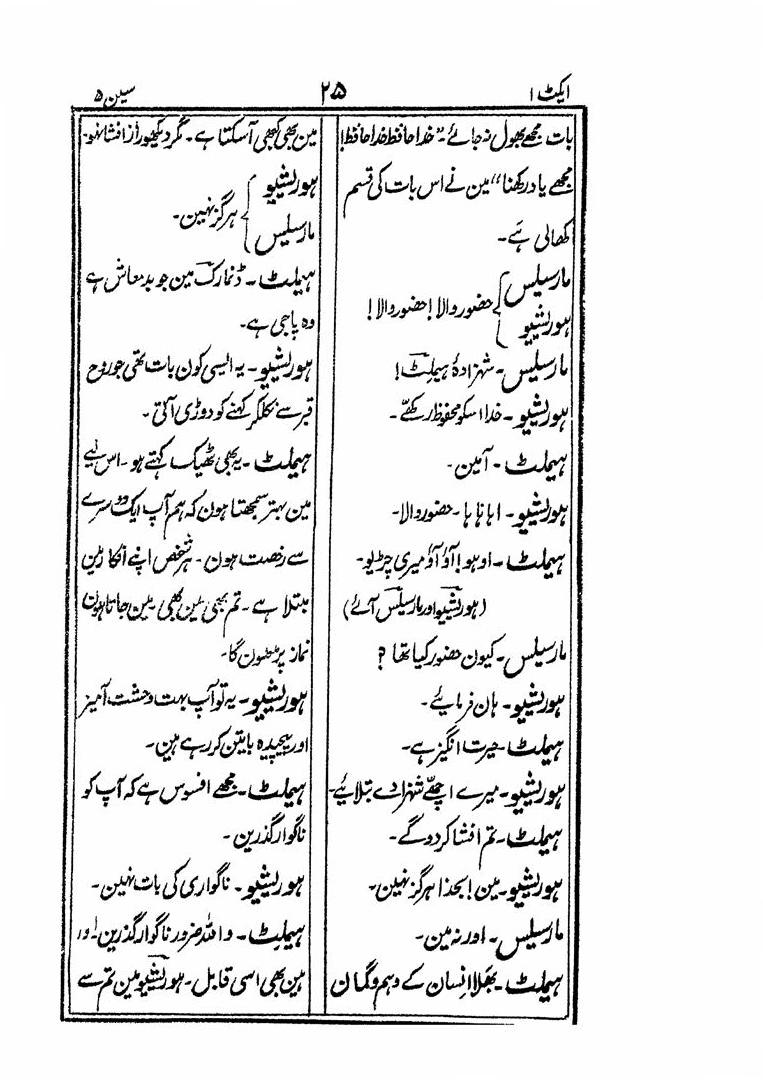 ایکٹ ۱
۲۵
سین ۵
بات مجھے بھول نہ جائے۔ "خدا حافظ خدا حافظ!
مجھے یاد رکھنا" مین نے اس بات کی قسم
کھالی ہے۔
مارسیلس
ہوریشیو
حضور والا! حضور والا!
مارسیلس۔ شہزادۂ ہیملٹ!
ہوریشیو۔ خدا اسکو محفوظ رکھے۔
ہیملٹ۔ آمین۔
ہوریشیو۔ اہاہاہا۔ حضور والا۔
ہیملٹ۔ اوہو! آؤ آؤ میری چڑیو۔
(ہوریشیو اور مارسیلس آئے)
مارسیلس۔ کیون حضور کیا تھا ?
ہوریشیو۔ ہان فرمائیے۔
ہیملٹ۔ حیرت انگیز ہے۔
ہوریشیو۔ میرے اچھے شہزادے بتلائیے۔
ہیملٹ۔ تم افشا کردوگے۔
ہوریشیو۔ مین! بخدا ہرگز نہین۔
مارسیلس۔ اور نہ مین۔
ہیملٹ۔ بھلا انسان کے وہم وگمان
مین بھی کبھی آسکتا ہے۔ مگر دیکھو راز افشا نہو۔
ہوریشیو
مارسیلس
ہرگز نہین۔
ہیملٹ۔ ڈنمارک مین جو بدمعاش ہے
وہ پاجی ہے۔
ہوریشیو۔ یہ ایسی کون بات تھی جو روح
قبر سے نکلکر کہنے کو دوڑی آتی۔
ہیملٹ۔ یہ بھی ٹھیک کہتے ہو۔ اس لیے
مین بہتر سمجھتا ہون کہ ہم آپ ایک دوسرے
سے رخصت ہون۔ ہر شخص اپنے افکار مین
مبتلا ہے۔ تم بھی مین بھی۔ مین جاتا ہون
نماز پڑھون گا۔
ہوریشیو۔ یہ تو آپ بہت وحشت آمیز
اور پیچیدہ باتین کر رہے ہین۔
ہیملٹ۔ مجھے افسوس ہے کہ آپ کو
ناگوار گذرین۔
ہوریشیو۔ ناگواری کی بات نہین۔
ہیملٹ۔ واللہ ضرور ناگوار گذرین۔ اور
ہین بھی اسی قابل۔ ہوریشیو مین تم سے